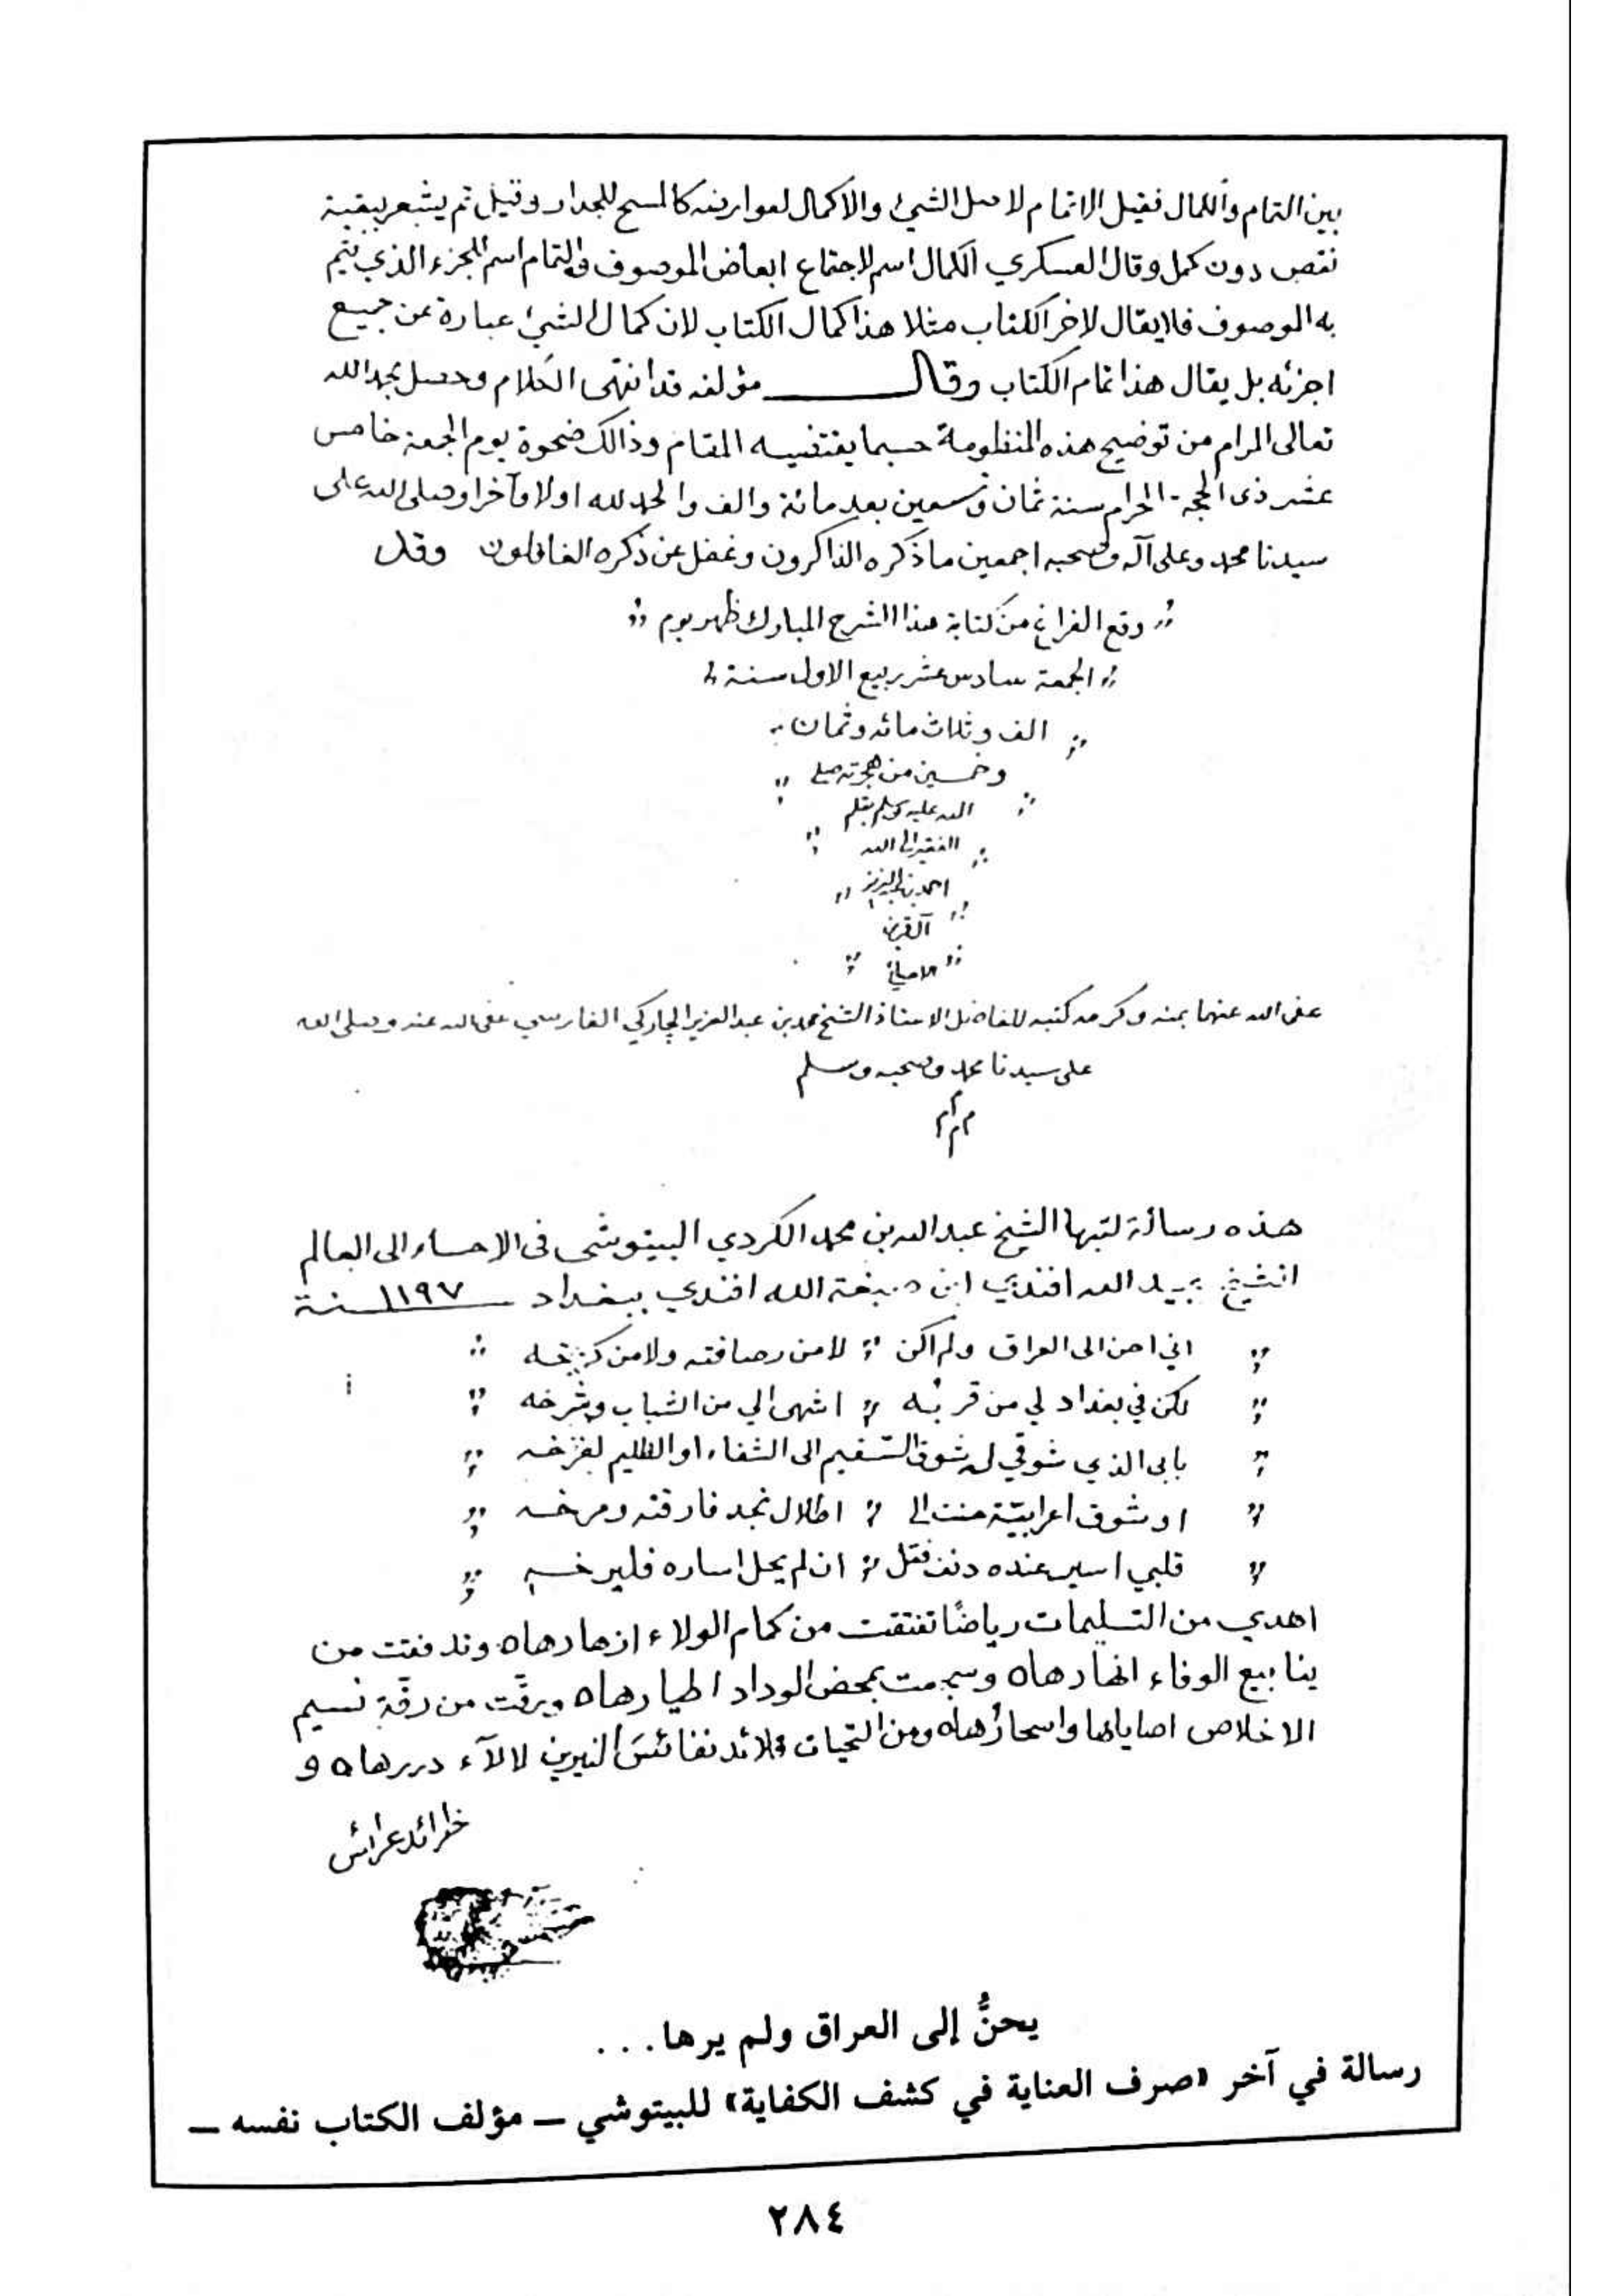 بين التمام والكمال فقيل الاتمام لاصل الشيئ والاكمال لعوارضه كالمسح للجدار وقيل تم يشعر ببقية
نقص دون كمل وقال العسكري الكمال اسم لاجتماع ابعاض الموصوف والتمام اسم للجزء الذي يتم
به الموصوف فلا يقال لاخر الكتاب مثلا هذا كمال الكتاب لان كمال الشيئ عبارة عن جميع
اجزئه بل يقال هذا تمام الكتاب وقال مؤلفه قد انتهى الكلام وحصل بحمد الله
تعالى المرام من توضيح هذه المنظومة حسبما يقتضيه المقام وذالك ضحوة يوم الجمعة خامس
عشر ذى الحجة الحرام سنة ثمان وتسعين بعد مائة والف والحمد لله اولا وآخرا وصلى الله على
سيدنا محمد وعلى آله وصحبه اجمعين ما ذكره الذاكرون وغفل عن ذكره الغافلون وقد
وقع الفراغ من كتابة هذا الشرح المبارك ظهر يوم
الجمعة سادس عشر ربيع الاول سنة
الف وثلاث مائه وثمان
وخمسين من هجرته صلى
الله عليه وسلم بقلم
الفقير الى الله
احمد بن عبد العزيز
آل قرين
الاحسائي
عفى الله عنهما بمنه وكرمه كتبه للفاضل الاستاذ الشيخ محمد بن عبد العزيز الجاركي الفارسي عفى الله عنه وصلى الله
على سيدنا محمد وصحبه وسلم
م م م
هذه رسالة كتبها الشيخ عبد الله بن محمد الكردي البيتوشى فى الاحساء الى العالم
الشيخ عبيد الله افندي ابن صبغة الله افندي ببغداد سنة ١١٩٧
اني احن الى العراق ولم اكن لا من رصافته ولا من كرخه
لكن في بغداد لي من قربُه اشهى الي من الشباب وشرخه
بابي الذي شوقي له شوق السقيم الى الشفاء او الظليم لفرخه
او شوق اعرابيّة حنت الى اطلال نجد فارقته ومرخه
قلبي اسير عنده دنف فقل ان لم يحل اساره فليرخه
اهدي من التسليمات رياضًا تفتقت من كمام الولاء ازهارها ٥ وتدفقت من
ينابيع الوفاء انهارها ٥ وسجعت بمحض الوداد اطيارها ٥ ورقّت من رقّة نسيم
الاخلاص اصايلها واسحارُها ٥ ومن التحيات قلائد نفائسَ النيرين لالآء دررها ٥ و
خرائد عرائس
يحنُّ إلى العراق ولم يرها...
رسالة في آخر «صرف العناية في كشف الكفاية» للبيتوشي – مؤلف الكتاب نفسه –
٢٨٤